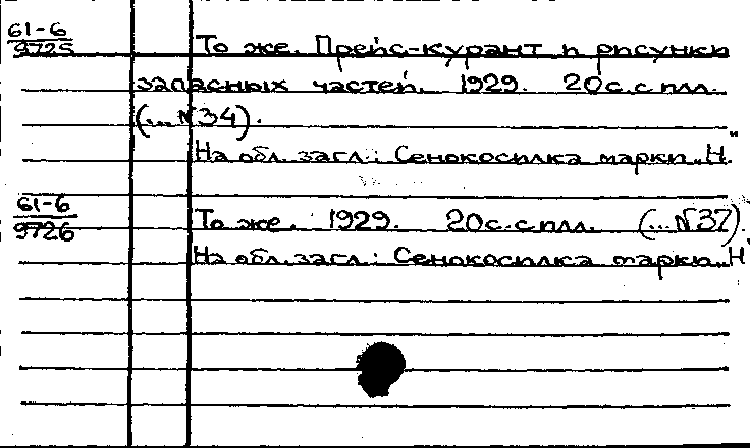 61-6
9725
То же. Прейс-курант и рисунки
запасных частей. 1929. 20с.с илл.
(... №34).
На обл. загл.: Сенокосилка марки „Н."
61-6
9726
То же. 1929. 20с.с илл. (... №37).
На обл. загл.: Сенокосилка марки „Н"